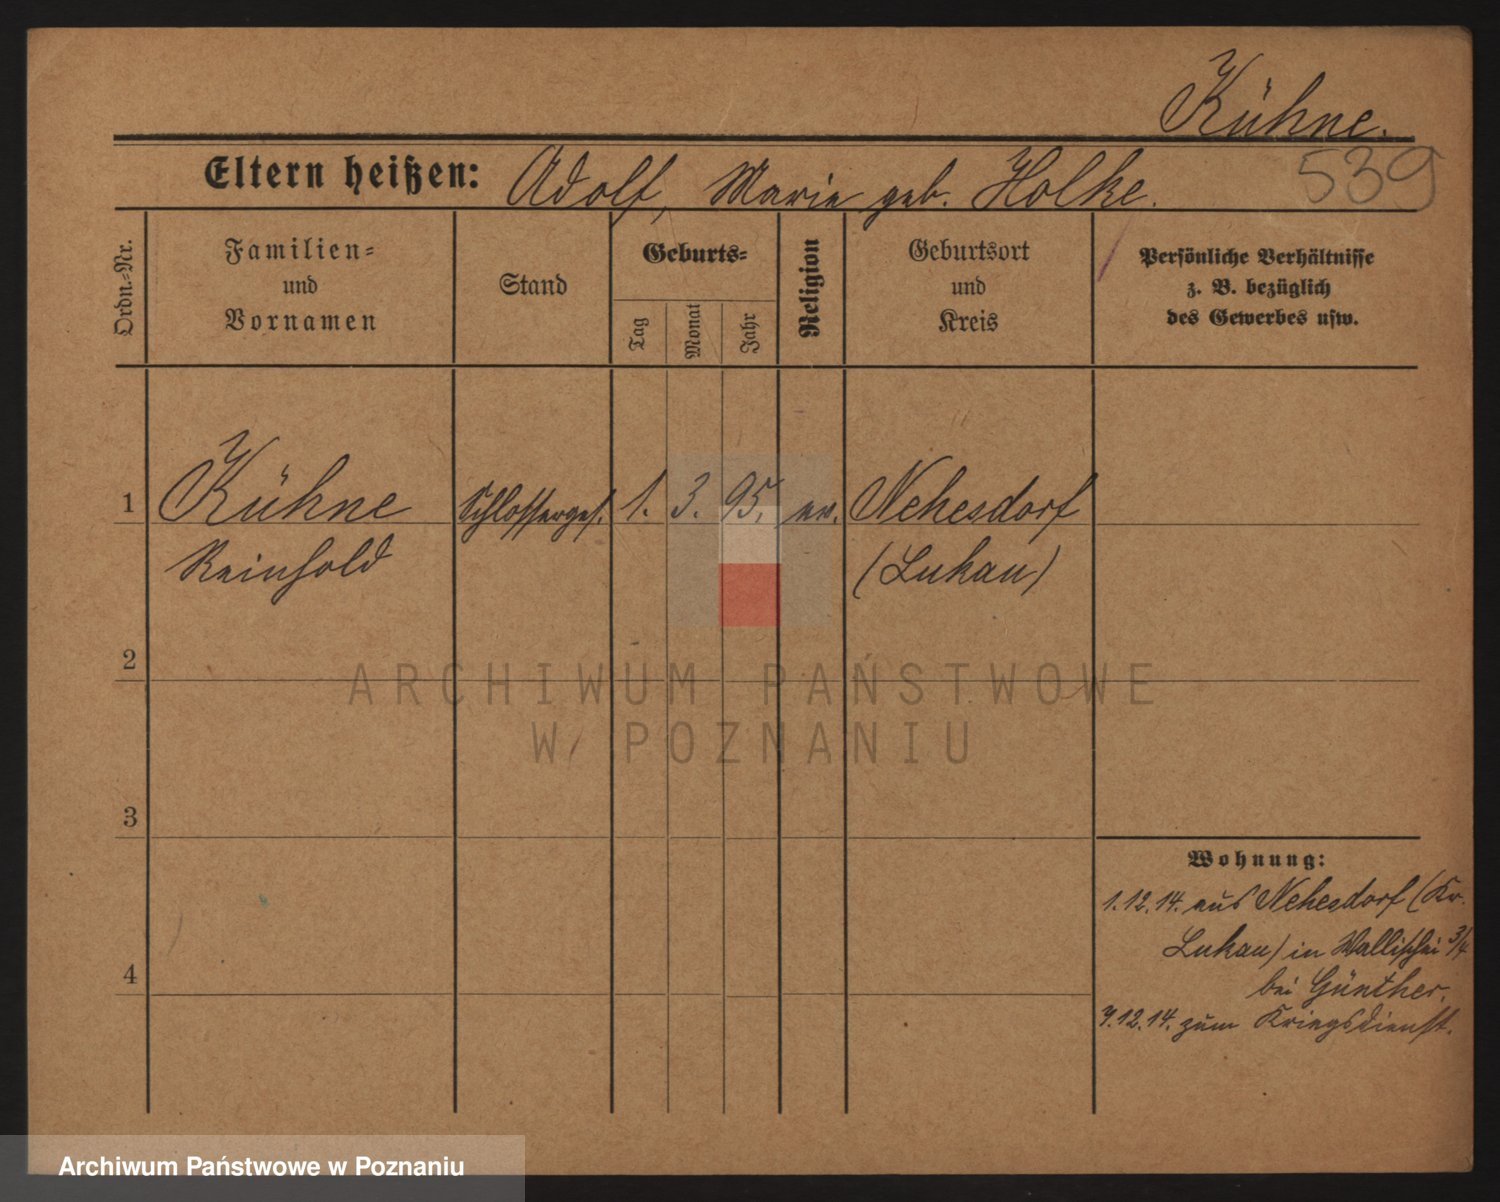 Kühne.
539
Eltern heißen: Adolf, Marie geb. Holke.
Ordn.-Nr.
Familien-
und
Vornamen
Stand
Geburts-
Tag
Monat
Jahr
Religion
Geburtsort
und
Kreis
Persönliche Verhältnisse
z. B. bezüglich
des Gewerbes usw.
1 Kühne Schlosserges. 1. 3. 95. ev. Nehesdorf
Reinhold (Lukau)
2
3
4
Wohnung:
1.12.14. aus Nehesdorf (Kr.
Lukau) in Wallischei 3/4
bei Günther.
7.12.14. zum Kriegsdienst.
ARCHIWUM PAŃSTWOWE
W POZNANIU
Archiwum Państwowe w Poznaniu